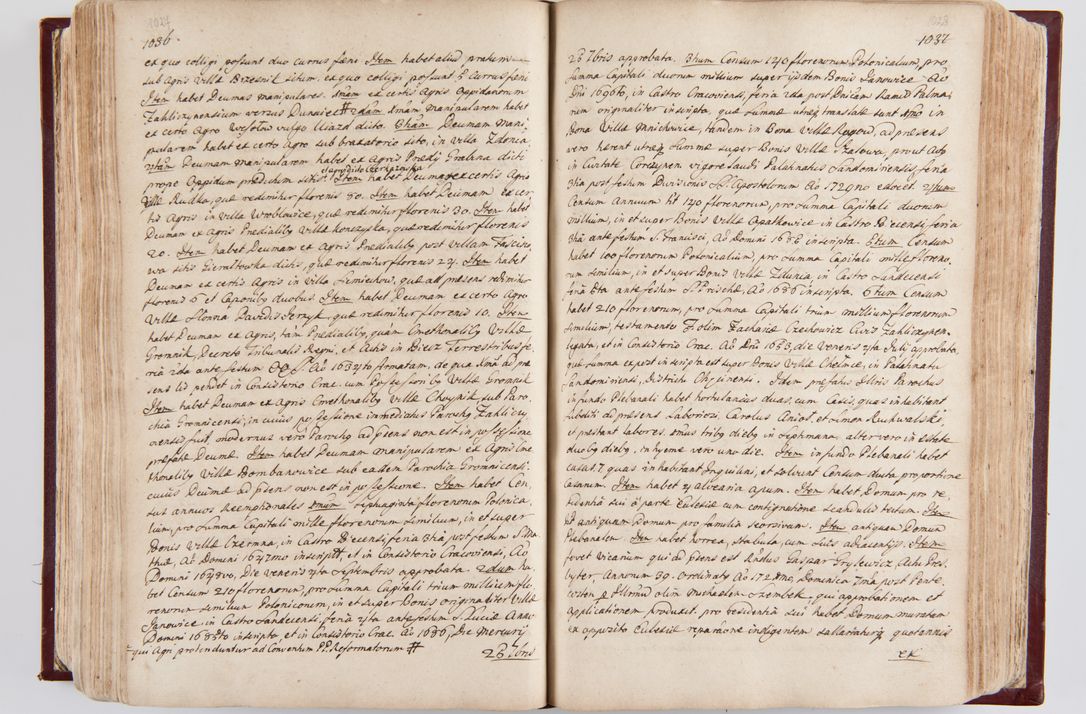 1027
1036.
ex quo colligi possunt duo currus fæni. Item habet aliud pratum
sub agris Villæ Brzesnik situm. ex quo colligi possunt 5 currus fæni
Item habet Decimas manipulares. 1mam ex certis Agris Oppidanorum
Zakliczynensium versus Dunaiec # 2dam 2dam manipularem habet
ex certo Agro vulgo Uiazd dicto. 3tiam Decimam mani-
pularem habet ex certo Agro sub braxatorio sito, in villa Zdonia
4tam Decimam manipularem habet ex Agris Prædij Grabina dicti
prope Oppidum prædictum sitis. Item habet Decimam ex certis Agris
Villæ Rudka, quæ redimitur florenis 30. Item habet Decimam ex cer-
tis Agris in Villa Wroblowice, quæ redimitur florenis 30. Item habet
Decimam ex Agris Prædialibus Villæ Konczyska, quæ redimitur florenis
20. Item habet Decimam ex Agris Prædialibus post Villam Fasciszo-
wa sitis Gieraltowska dictis, quæ redimitur florenis 24. Item habet
Decimam ex certis Agris in Villa Siemiechow, quæ ad præsens redimitur
florenis 6 et Caponibus duobus Item habet Decimam ex certo Agro
Villæ Słonna quæ redimitur florenis 10. Item
habet Decimam ex Agris, tam Prædialibus, quam Cmethonalibus Villæ
Gromnik, Decreto Tribunalis Regni, et Actis in Biecz Terrestribus fe-
ria 2da ante festum Ao 1632to firmatam, de qua 1ma ad præ-
sens lis pendet in Consistorio Crac. cum Possessoribus Villæ Gromnik
Item habet Decimam ex Agris Cmethonalibus Villæ Choynik, sub Paro-
chia Gromnicensi, in cuius possessione immediatus Parochus Zakliczy-
nensis fuit, modernus vero Parochus ad præsens non est in possessione
præfatæ Decimæ. Item habet Decimam manipularem ex Agris Cme-
thonalibus Villæ Bombanowice sub eadem Parochia Gromnicensi.
cuius Decimæ ad præsens non est in possessione. Item habet Cen-
sus annuos Reemptionales 1mum Septuaginta florenorum Polonica-
lium, pro summa Capitali mille florenorum similium, in et super
Bonis Villæ Czermna, in Castro Biecensi feria 3tia post festum S. Ma-
thiæ, Ao Domini 1647mo inscriptus, et in Consistorio Cracoviensi, Ao
Domini 1648vo, Die Veneris 4ta Septembris approbata. 2dum ha-
bet Censum 210 florenorum, pro summa Capitali trium millium flo-
renorum similium Polonicorum, in et super Bonis originaliter Villæ
Janowice in Castro Sandecensi, feria 4ta ante festum S. Luciæ Anno
Domini 1685to inscripto, et in Consistorio Crac. Ao 1686, Die Mercurij
qui Agri protenduntur ad Conventum P.P. Reformatorum #
23 7bris
1028
1037
23 7bris approbata. 3tium Censum 140 florenorum Polonicalium, pro
summa Capitali duorum millium super ijsdem Bonis Janowice Ao
Dni 1696to, in Castro Cracoviensi, feria 2da post Dnicam Ramis Palma-
rum originaliter inscripta, quæ summæ utræque translatæ sunt 1mo in
Bona Villæ Mnichowice, tandem in Bona Villæ ad præsens
vero hærent utræque summæ super Bonis Villæ prout Actis
in Civitate Korczyn vigore laudi Palatinatus Sandomiriensis, feria
3tia post festum Divisionis S.S. Apostolorum Ao 1729no edocet. 4tum
Censum Annuum hic 140 florenorum, pro summa Capitali duorum
millium, in et super Bonis Villæ Opatkowice in Castro Biecensi feria
3tia ante festum S. Francisci, Ao Domini 1658 inscripta. 5tum Censum
habet 100 florenorum Polonicalium, pro summa Capitali mille floreno-
rum similium, in et super Bonis Villæ Zdunia, in Castro Sandecensi
feria 6ta ante festum S. Priscæ, Ao 1686 inscripta. 6tum Censum
habet 210 florenorum, pro summa Capitali trium millium florenorum
similium, testamento olim Zachariæ Czechowicz Civis Zakliczynen.
legata, et in Consistorio Crac. Ao Dni 1633, die veneris 4ta Julij approbata,
quæ summa ex post inscripta est super Bonis Villæ Chelmce, in Palatinatu
Sandomiriensi, Districtu Chęcinensi. Idem præfatus Illris Parochus
in fundo Plebanali habet hortulanias duas, cum Casis, quas inhabitant
subditi ad præsens laboriosi, Carolus Anioł, et Simon Kukwalski,
et præstant labores, omnes tribus diebus in Septimana, alter vero in æstate
duobus diebus, in hyeme vero uno die. Item in fundo Plebanali habet
casas 7, quas inhabitant Inquilini, et solvunt Censum iuxta proportione
Casarum. Item habet 4 alvearia apum. Item habet Domum pro re-
sidentia sui ex parte Ecclesiæ cum contignatione scandulis tectum. Item
et antiquam Domum pro familia seorsivam. Item antiquam Domum
Plebanalem. Item habet horrea, stabula, cum suis adiacentijs. Item
fovet Vicarium qui ad præsens est Rndus Gaspar Grysewicz, Actu Pres-
byter, Annorum 39. Ordinatus Ao 172 Dno, Dominica Trinitatis post Pente-
costen per Illrmum olim Michaelem Szembek, qui approbationem et
applicationem produxit, pro residentia sui habet Domum muratam
ex opposito Ecclesiæ reparatione indigentem sallariatur quotannis
ex